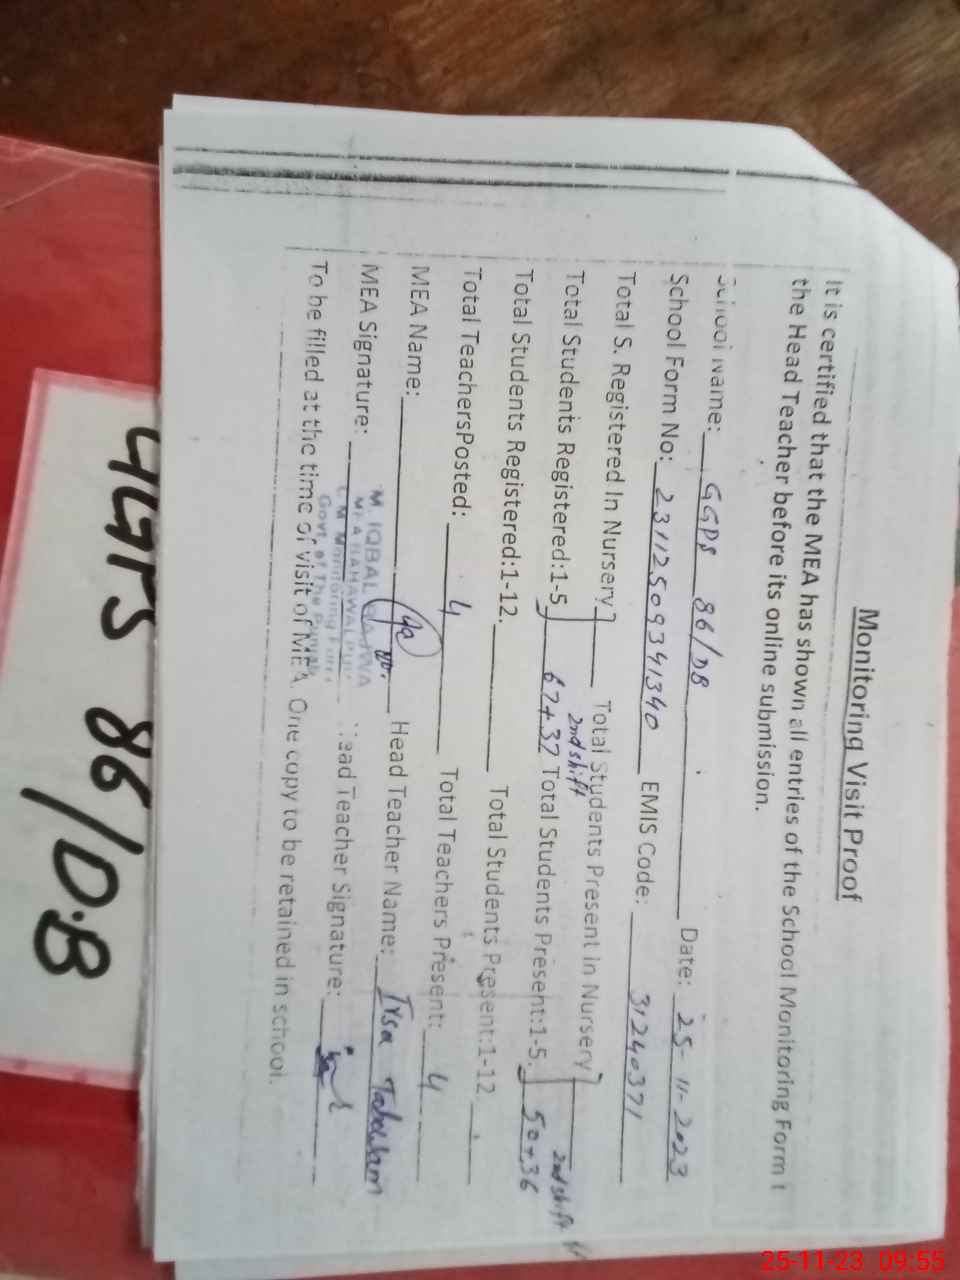 Monitoring Visit Proof
It is certified that the MEA has shown all entries of the School Monitoring Form t
the Head Teacher before its online submission.
School Name: GGPS 86/DB Date: 25-11-2023
School Form No: 23112509341340 EMIS Code: 31240371
Total S. Registered In Nursery Total Students Present in Nursery
2nd shift 2nd shift
Total Students Registered:1-5 67+37 Total Students Present:1-5. 50+36
Total Students Registered:1-12. Total Students Present:1-12
Total TeachersPosted: 4 Total Teachers Present: 4
MEA Name: Head Teacher Name: Irsa Tabassum
M. IQBAL BAJWA
MEA BAHAWALPUR
CM Monitoring Force
Govt. of The Punjab
MEA Signature: Head Teacher Signature:
To be filled at the time of visit of MEA. One copy to be retained in school.
GGPS 86/D.B
25-11-23 09:55